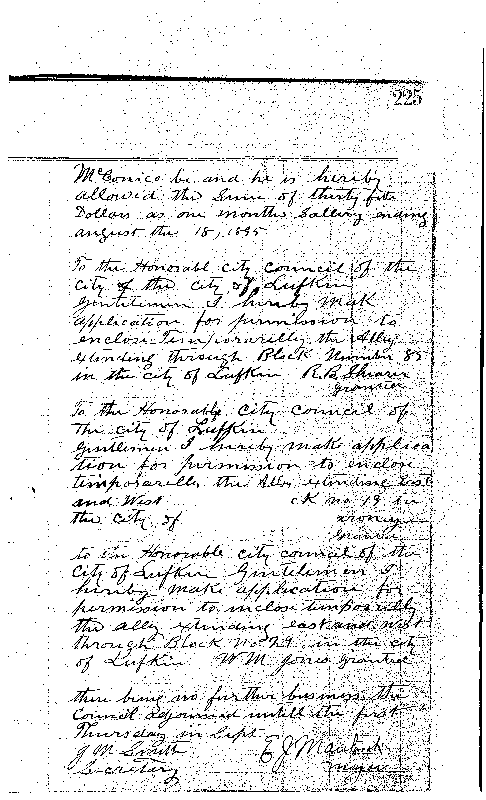 225
McConico be and he is hereby
allowed the sum of thirty five
Dollars as one months Sallery ending
august the 18, 1895
To the Honorable city council of the
city of the city of Lufkin
Gentlemen I hereby mak
application for permission to
enclose temporarilly the Alley
extending through Block Number 85
in the city of Lufkin R.B. Shearer
granted
To the Honorable city council of
the city of Lufkin
Gentlemen I hereby make applica
tion for permission to enclose
temporarilly the Alley extending East
and West ck no 19 in
the city of
granted
to the Honorable city council of the
City of Lufkin Gentelemen I
hereby make application for
permission to inclose temporarilly
the ally extending east and west
through Block No 29 in the city
of Lufkin W.M. Jones granted
there being no further business the
Council adjourned untill the first
Thursday in Sept
G M Smith E J Mantooth
Secretary mayor